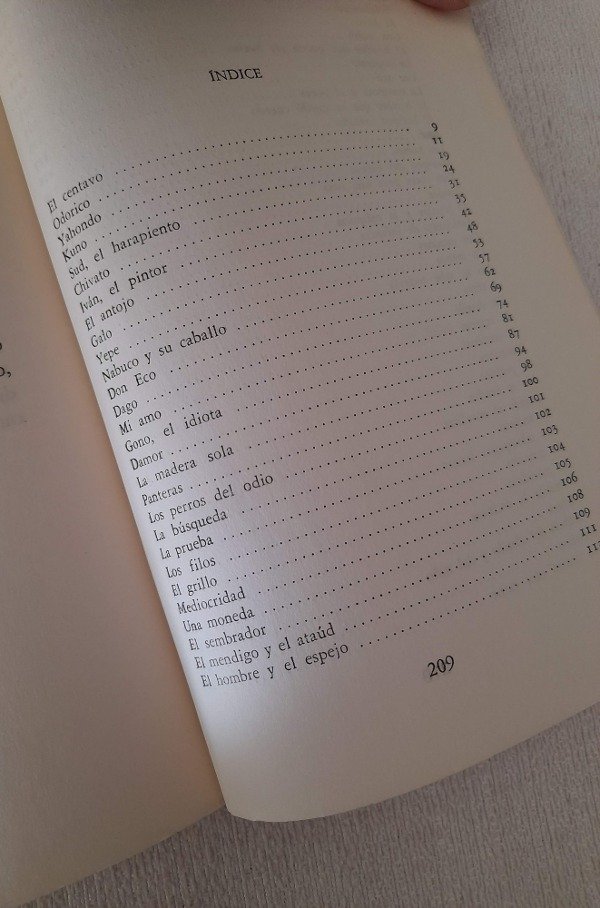 ÍNDICE
El centavo ........ 9
Odorico ........ 11
Yahondo ........ 19
Kuno ........ 24
Sud, el harapiento ........ 31
Chivato ........ 35
Iván, el pintor ........ 42
El antojo ........ 48
Galo ........ 53
Yepe ........ 57
Nabuco y su caballo ........ 62
Don Eco ........ 69
Dago ........ 74
Mi amo ........ 81
Gono, el idiota ........ 87
Damor ........ 94
La madera sola ........ 98
Panteras ........ 100
Los perros del odio ........ 101
La búsqueda ........ 102
La prueba ........ 103
Los filos ........ 104
El grillo ........ 105
Mediocridad ........ 106
Una moneda ........ 108
El sembrador ........ 109
El mendigo y el ataúd ........ 111
El hombre y el espejo ........
209